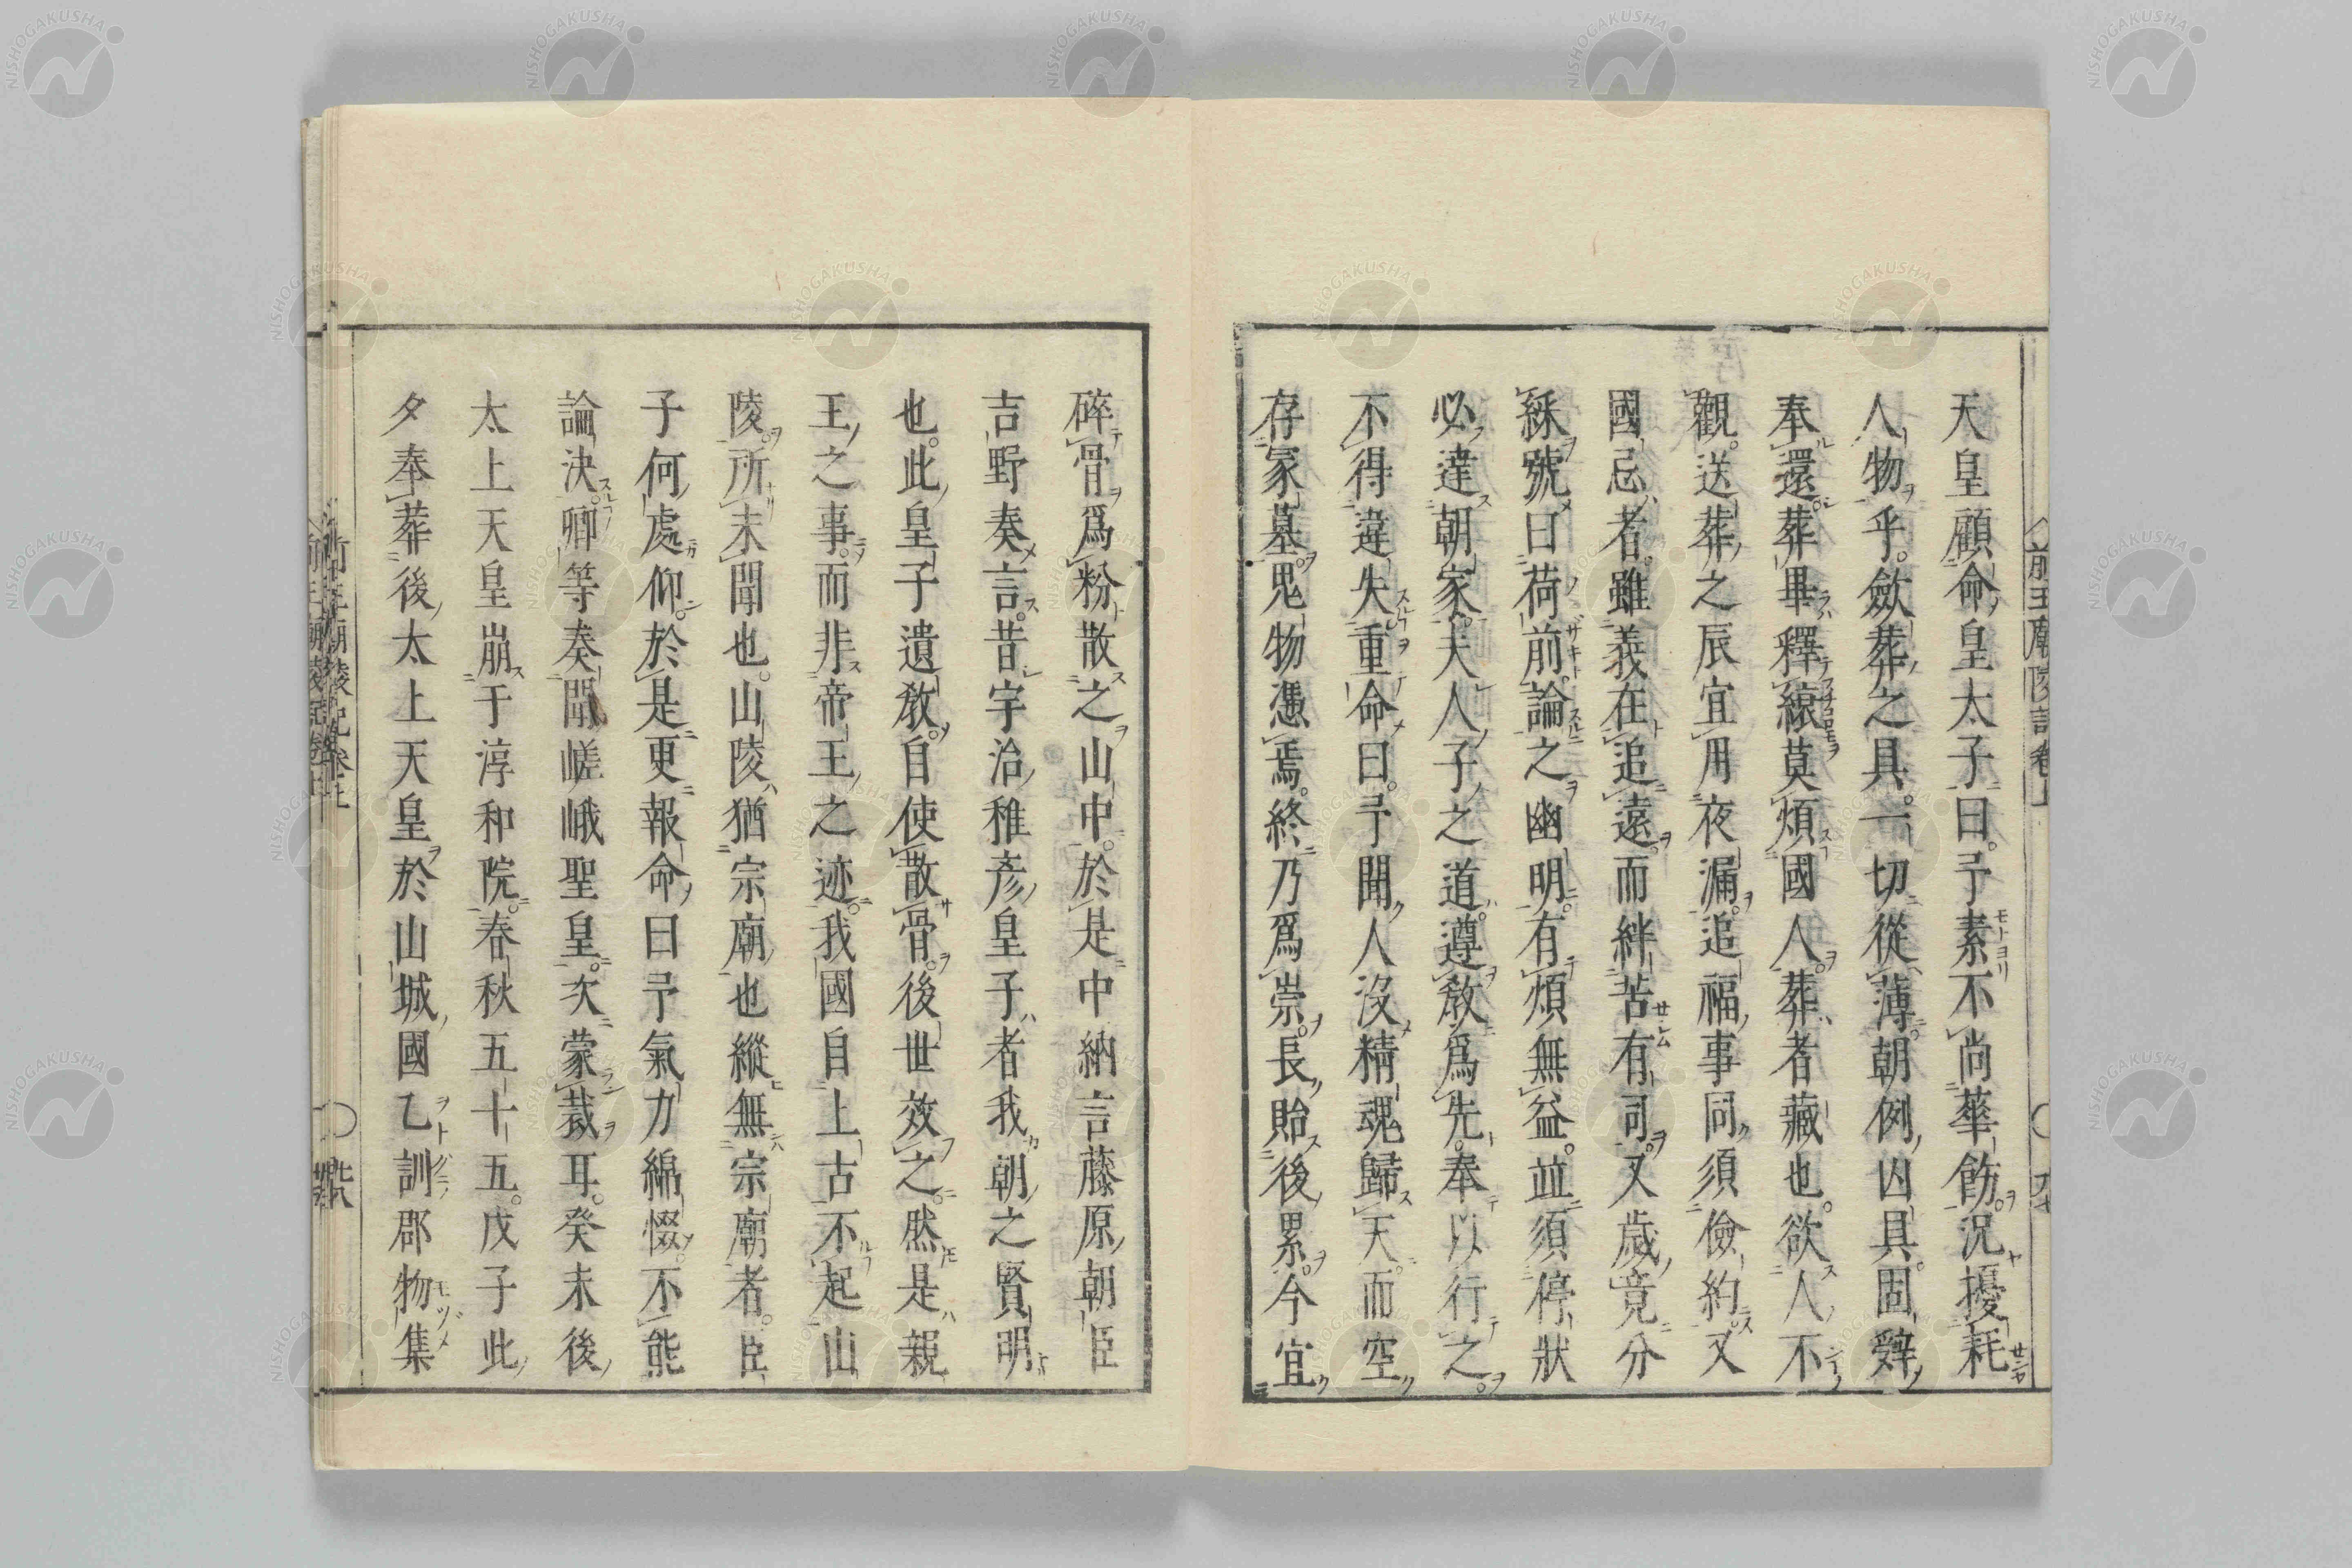 天皇顧命皇太子曰。予素不尚華飾。況擾耗
人物乎。斂葬之具。一切從薄。朝例凶具。固辭
奉還。葬畢釋縗。莫煩國人。葬者藏也。欲人不
觀。送葬之辰。宜用夜漏。追福事同須儉約。又
國忌者。雖義在追遠。而絆苦有司。又歲竟分
綵號曰荷前。論之幽明。有煩無益。並須停狀
必達朝家。夫人子之道。遵教爲先。奉以行之。
不得違失。重命曰。予聞人沒精魂歸天。而空
存冢墓。鬼物憑焉。終乃爲祟。長貽後累。今宜
碎骨爲粉散之山中。於是中納言藤原朝臣
吉野奏言。昔宇治稚彦皇子者我朝之賢明
也。此皇子遺教。自使散骨。後世效之。然是親
王之事。而非帝王之迹。我國自上古不起山
陵。所未聞也。山陵猶宗廟也縱無宗廟者。臣
子何處仰。於是更報命曰予氣力綿惙。不能
論決。卿等奏聞嵯峨聖皇。次蒙裁耳。癸未後
太上天皇崩于淳和院。春秋五十五。戊子此
夕奉葬後太上天皇於山城國乙訓郡物集
前王廟陵記卷上